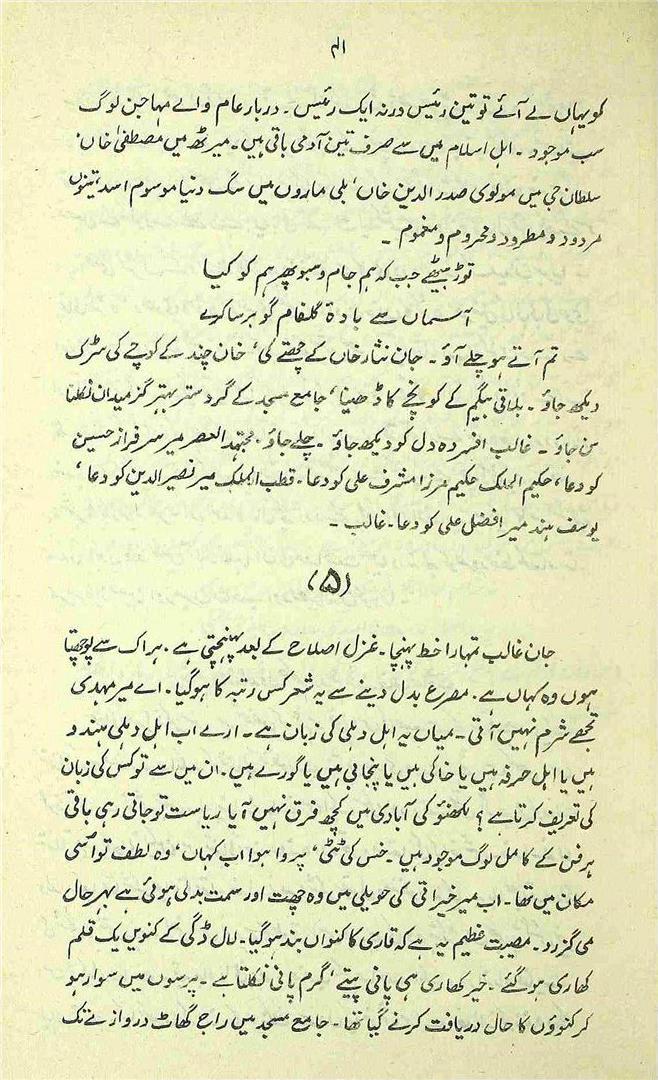 ۴۱
کو یہاں لے آئے تو تین رئیس ورنہ ایک رئیس۔ دربار عام والے مہاجن لوگ
سب موجود۔ اہل اسلام میں سے صرف تین آدمی باقی ہیں۔ میرٹھ میں مصطفیٰ خاں،
سلطان جی میں مولوی صدر الدین خاں، بلی ماروں میں سگ دنیا موسوم اسد، تینوں
مردود و مطرود و محروم و مغموم۔
توڑ بیٹھے جب کہ ہم جام و سبو پھر ہم کو کیا
آسماں سے بادۂ گلفام گو برسا کرے
تم آتے ہو چلے آؤ۔ جان نثار خاں کے چھتے کی، خان چند کے کوچے کی سڑک
دیکھ جاؤ۔ بلاقی بیگم کے کونچے کا ڈھینا، جامع مسجد کے گرد ستر بہتر گز میدان نکلنا
سن جاؤ۔ غالب افسردہ دل کو دیکھ جاؤ۔ چلے جاؤ۔ مجتہد العصر میر سرفراز حسین
کو دعا، حکیم الملک حکیم مرزا مشرف علی کو دعا۔ قطب الملک میر نصیر الدین کو دعا،
یوسف ہند میر افضل علی کو دعا۔ غالب۔
(۵)
جان غالب تمہارا خط پہنچا۔ غزل اصلاح کے بعد پہنچتی ہے۔ ہر اک سے پوچھتا
ہوں وہ کہاں ہے۔ مصرع بدل دینے سے یہ شعر کس رتبہ کا ہو گیا۔ اے میر مہدی
تجھے شرم نہیں آتی۔ میاں یہ اہل دہلی کی زبان ہے۔ ارے اب اہل دہلی ہندو
ہیں یا اہل حرفہ ہیں یا خاکی ہیں یا پنجابی ہیں یا گورے ہیں۔ ان میں سے تو کس کی زبان
کی تعریف کرتا ہے؟ لکھنؤ کی آبادی میں کچھ فرق نہیں آیا ریاست تو جاتی رہی باقی
ہر فن کے کامل لوگ موجود ہیں۔ خس کی ٹٹی، پروا ہوا اب کہاں، وہ لطف تو اسی
مکان میں تھا۔ اب میر خیراتی کی حویلی میں وہ چھت اور سمت بدلی ہوئی ہے بہر حال
می گزرد۔ مصیبت عظیم یہ ہے کہ قاری کا کنواں بند ہو گیا۔ لال ڈگی کے کنویں یک قلم
کھاری ہو گئے۔ خیر کھاری ہی پانی پیتے، گرم پانی نکلتا ہے۔ پرسوں میں سوار ہو
کر کنوؤں کا حال دریافت کرنے گیا تھا۔ جامع مسجد میں راج گھاٹ دروازے تک